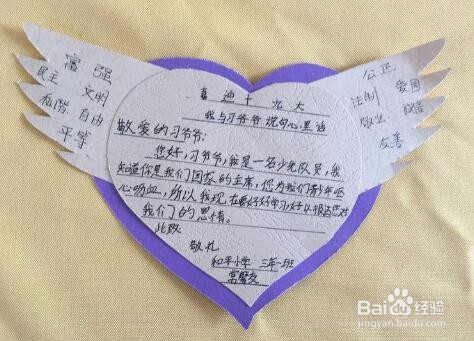 富强
民主 文明
和谐 自由
平等
公正
法制 爱国
敬业 诚信
友善
喜迎十九大
我与习爷爷说句心里话
敬爱的习爷爷:
您好,习爷爷,我是一名少先队员,我
知道你是我们国家的主席,您为我们
心呕血,所以我现在要好好学习,好以报达您对
我们的恩情。
此致
敬礼
和平小学 三年一班
常馨友
Baidu经验
jingyan.baidu.com